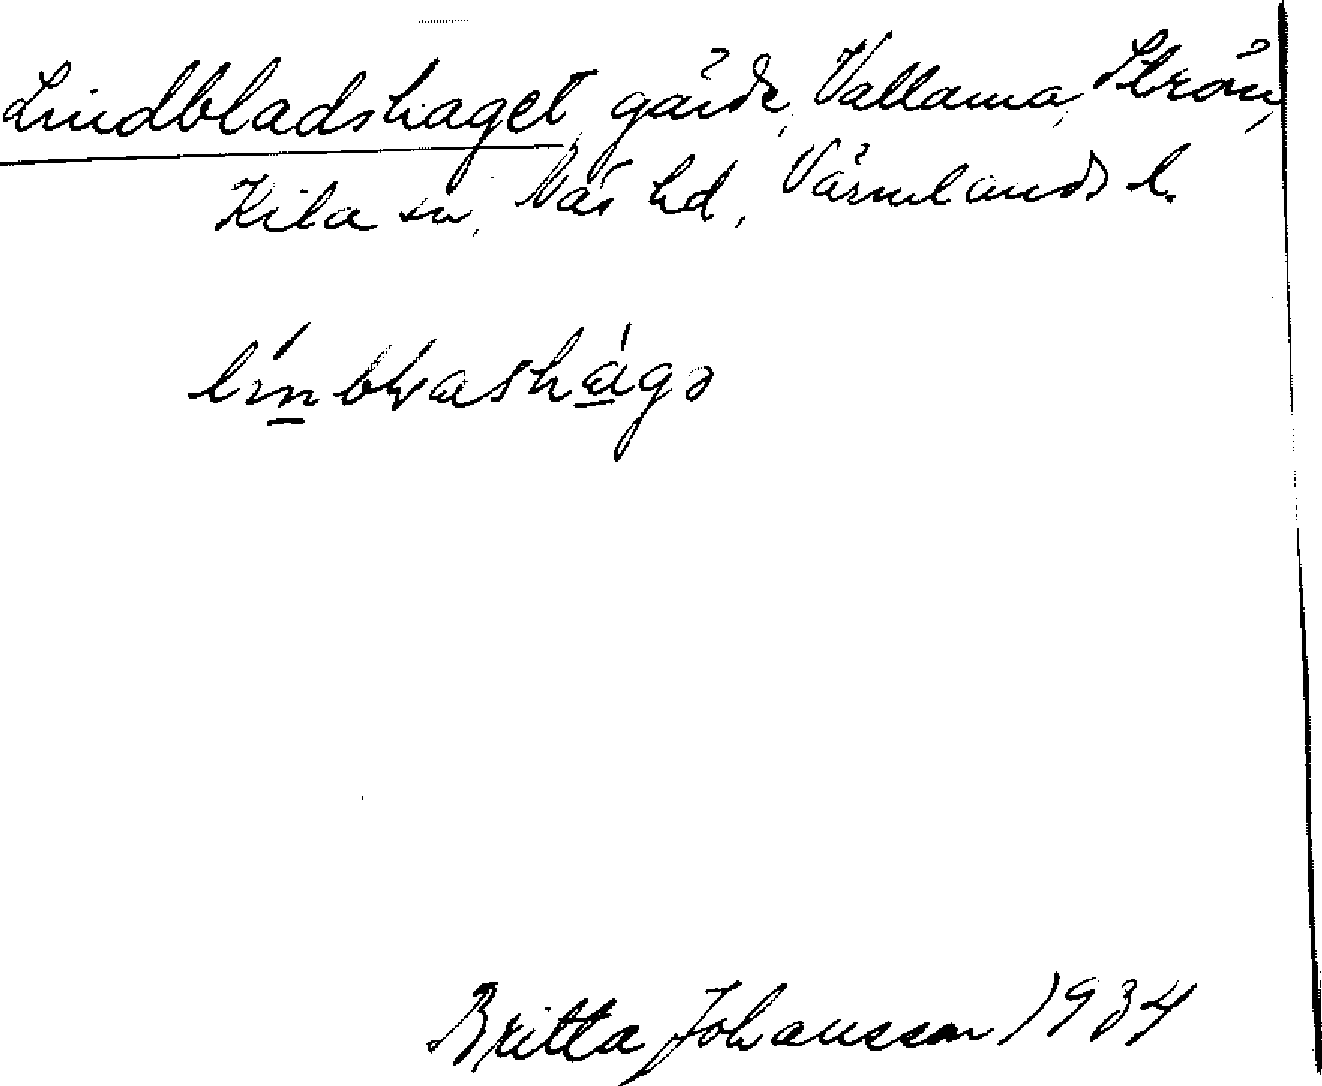 Lindbladshaget, gärde, Vallarna, Strön,
Kila sn, Näs hd, Värmlands l.
línbłashág
Britta Johansson 1934